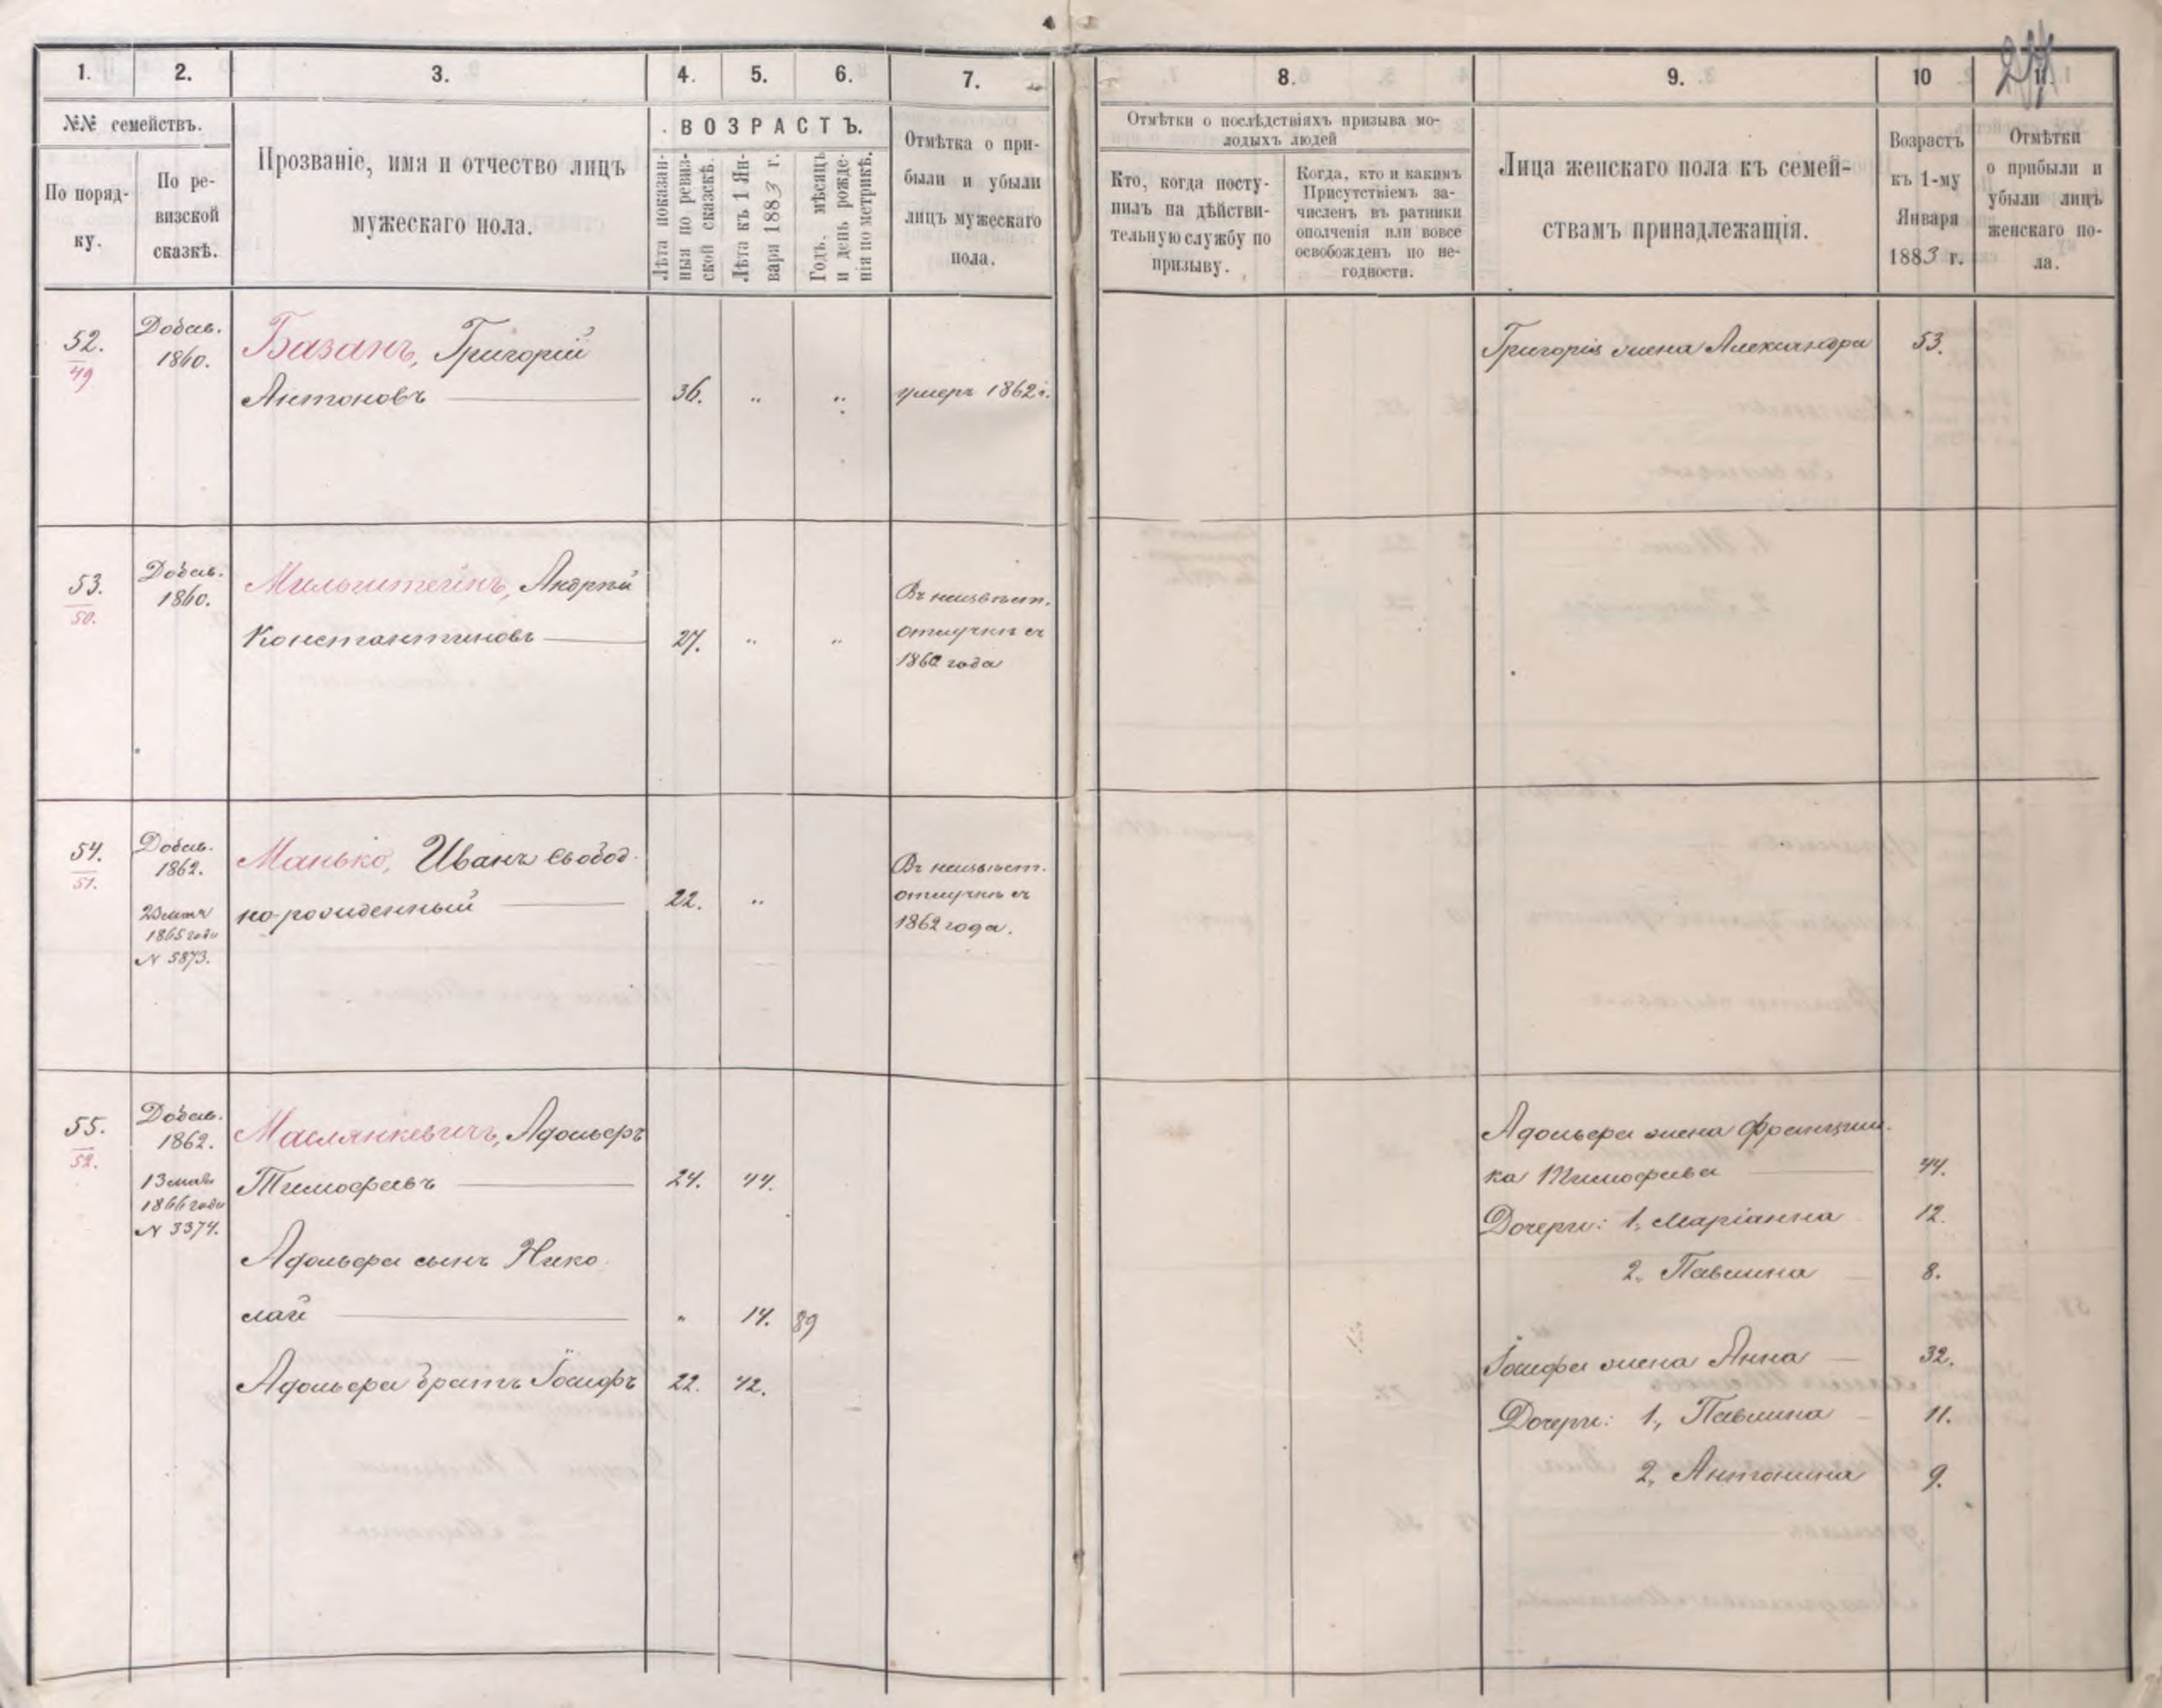 1.
2.
3.
4.
5.
6.
7.
8.
9.
10
№№ семействъ.
По поряд-
ку.
По ре-
визской
сказкѣ.
Прозваніе, имя и отчество лицъ
мужескаго пола.
ВОЗРАСТЪ.
Лѣта показан-
ныя по ревиз-
ской сказкѣ.
Лѣта къ 1 Ян-
варя 1883 г.
Годъ, мѣсяцъ
и день рожде-
нія по метрикѣ.
Отмѣтка о при-
были и убыли
лицъ мужескаго
пола.
Отмѣтки о послѣдствіяхъ призыва мо-
лодыхъ людей
Кто, когда посту-
пилъ на дѣйстви-
тельную службу по
призыву.
Когда, кто и какимъ
Присутствіемъ за-
численъ въ ратники
ополченія или вовсе
освобожденъ по не-
годности.
Лица женскаго пола къ семей-
ствамъ принадлежащія.
Возрастъ
къ 1-му
Января
1883 г.
Отмѣтки
о прибыли и
убыли лицъ
женскаго по-
ла.
52.
49
Добав.
1860.
Базанъ, Григорій
Антоновъ
36.
„
„
умеръ 1862 г.
Григорія жена Александра
53.
53.
50.
Добав.
1860.
Мильштейнъ, Андрей
Константиновъ
27.
„
„
Въ неизвѣст.
отлучкѣ съ
1860 года
54.
51.
Добав.
1862.
1865 года
N 5873.
Манько, Иванъ свобод-
но-рожденный
22.
„
Въ неизвѣст.
отлучкѣ съ
1862 года.
55.
52.
Добав.
1862.
13 мая
1866 года
N 3374.
Маслянкевичъ, Адольфъ
Тимофѣевъ
24.
44.
Адольфа сынъ Нико-
лай
„
14.
89
Адольфа братъ Іосифъ
22.
42.
Адольфа жена Францишка
ка Тимофѣева
44.
Дочери: 1, Маріанна
12.
2, Павлина
8.
Іосифа жена Анна
32.
Дочери: 1, Павлина
11.
2, Антонина
9.